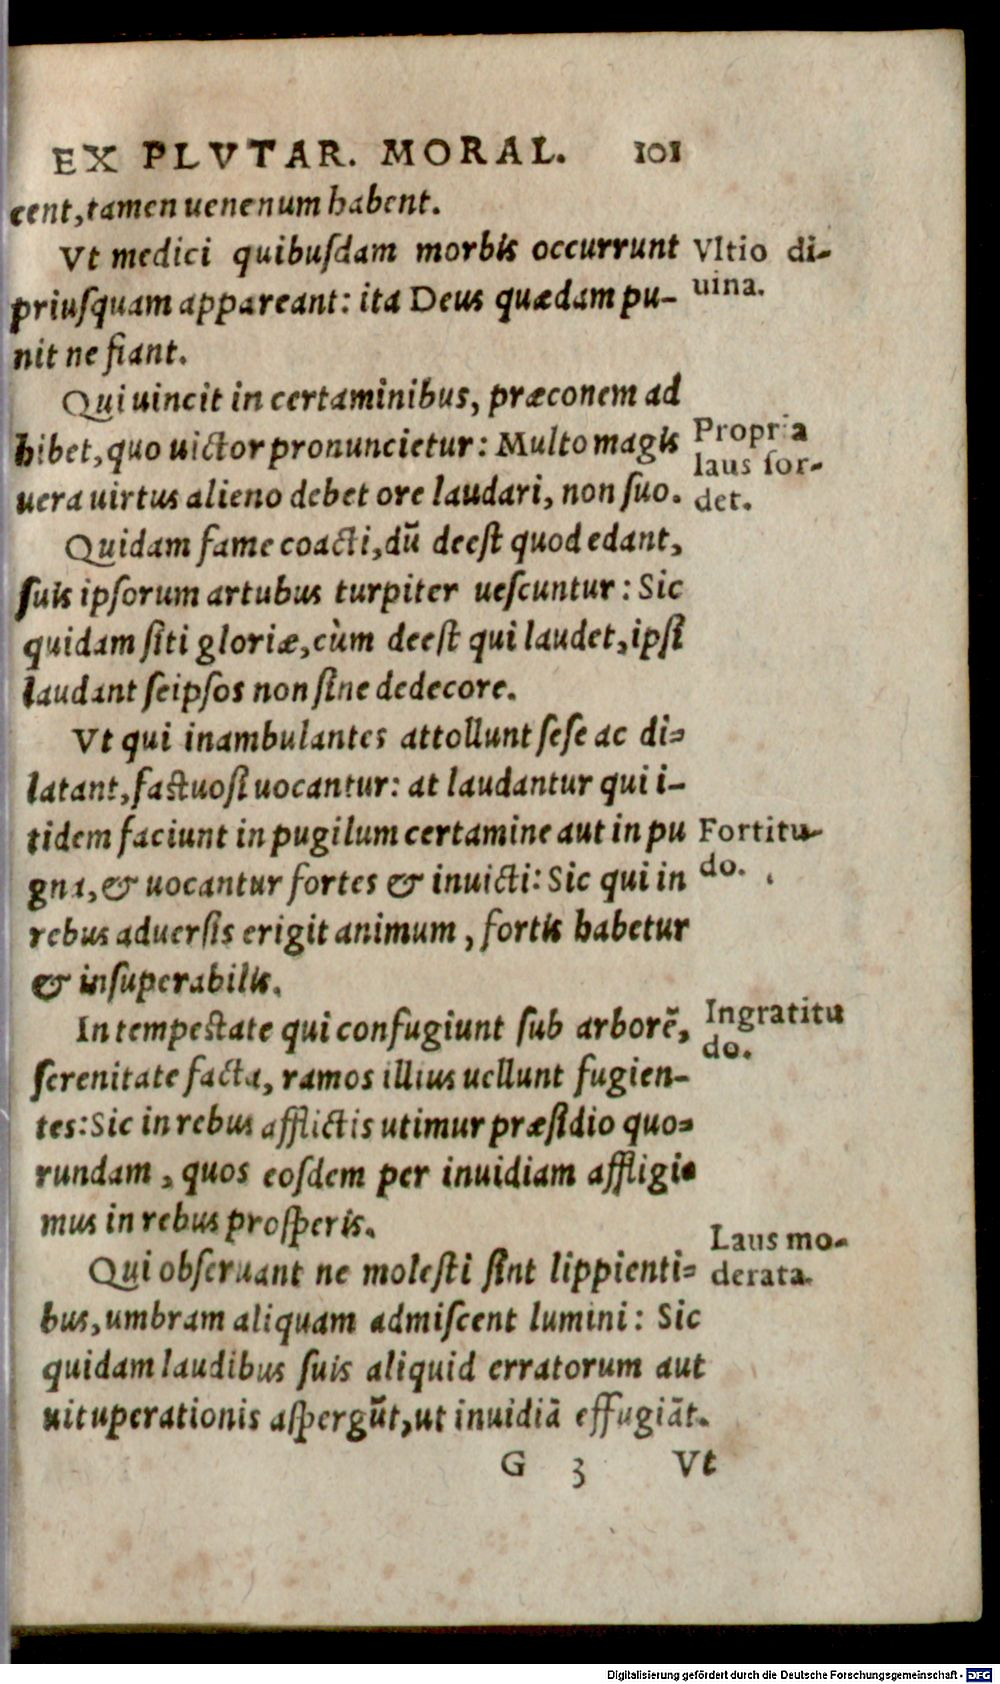 EX PLVTAR. MORAL. 101
cent, tamen uenenum habent.
Vt medici quibuſdam morbis occurrunt
priuſquam appareant: ita Deus quædam pu-
nit ne fiant.
Vltio di-
uina.
Qui uincit in certaminibus, præconem ad
hibet, quo uictor pronuncietur: Multo magis
uera uirtus alieno debet ore laudari, non ſuo.
Propria
laus ſor-
det.
Quidam fame coacti, dū deeſt quod edant,
ſuis ipſorum artubus turpiter ueſcuntur: Sic
quidam ſiti gloriæ, cùm deeſt qui laudet, ipſi
laudant ſeipſos non ſine dedecore.
Vt qui inambulantes attollunt ſeſe ac di-
latant, faſtuoſi uocantur: at laudantur qui i-
tidem faciunt in pugilum certamine aut in pu
gna, & uocantur fortes & inuicti: Sic qui in
rebus aduerſis erigit animum, fortis habetur
& inſuperabilis.
Fortitu-
do.
In tempeſtate qui confugiunt ſub arborē,
ſerenitate facta, ramos illius uellunt fugien-
tes: Sic in rebus afflictis utimur præſidio quo-
rundam, quos eoſdem per inuidiam affligi-
mus in rebus proſperis.
Ingratitu
do.
Qui obſeruant ne moleſti ſint lippienti-
bus, umbram aliquam admiſcent lumini: Sic
quidam laudibus ſuis aliquid erratorum aut
uituperationis aſpergūt, ut inuidiā effugiāt.
Laus mo-
derata.
G 3 Vt
Digitalisierung gefördert durch die Deutsche Forschungsgemeinschaft - DFG